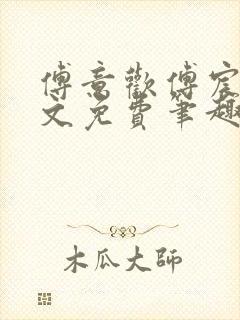 傅意歡傅宸
文免費筆趣
木瓜大師